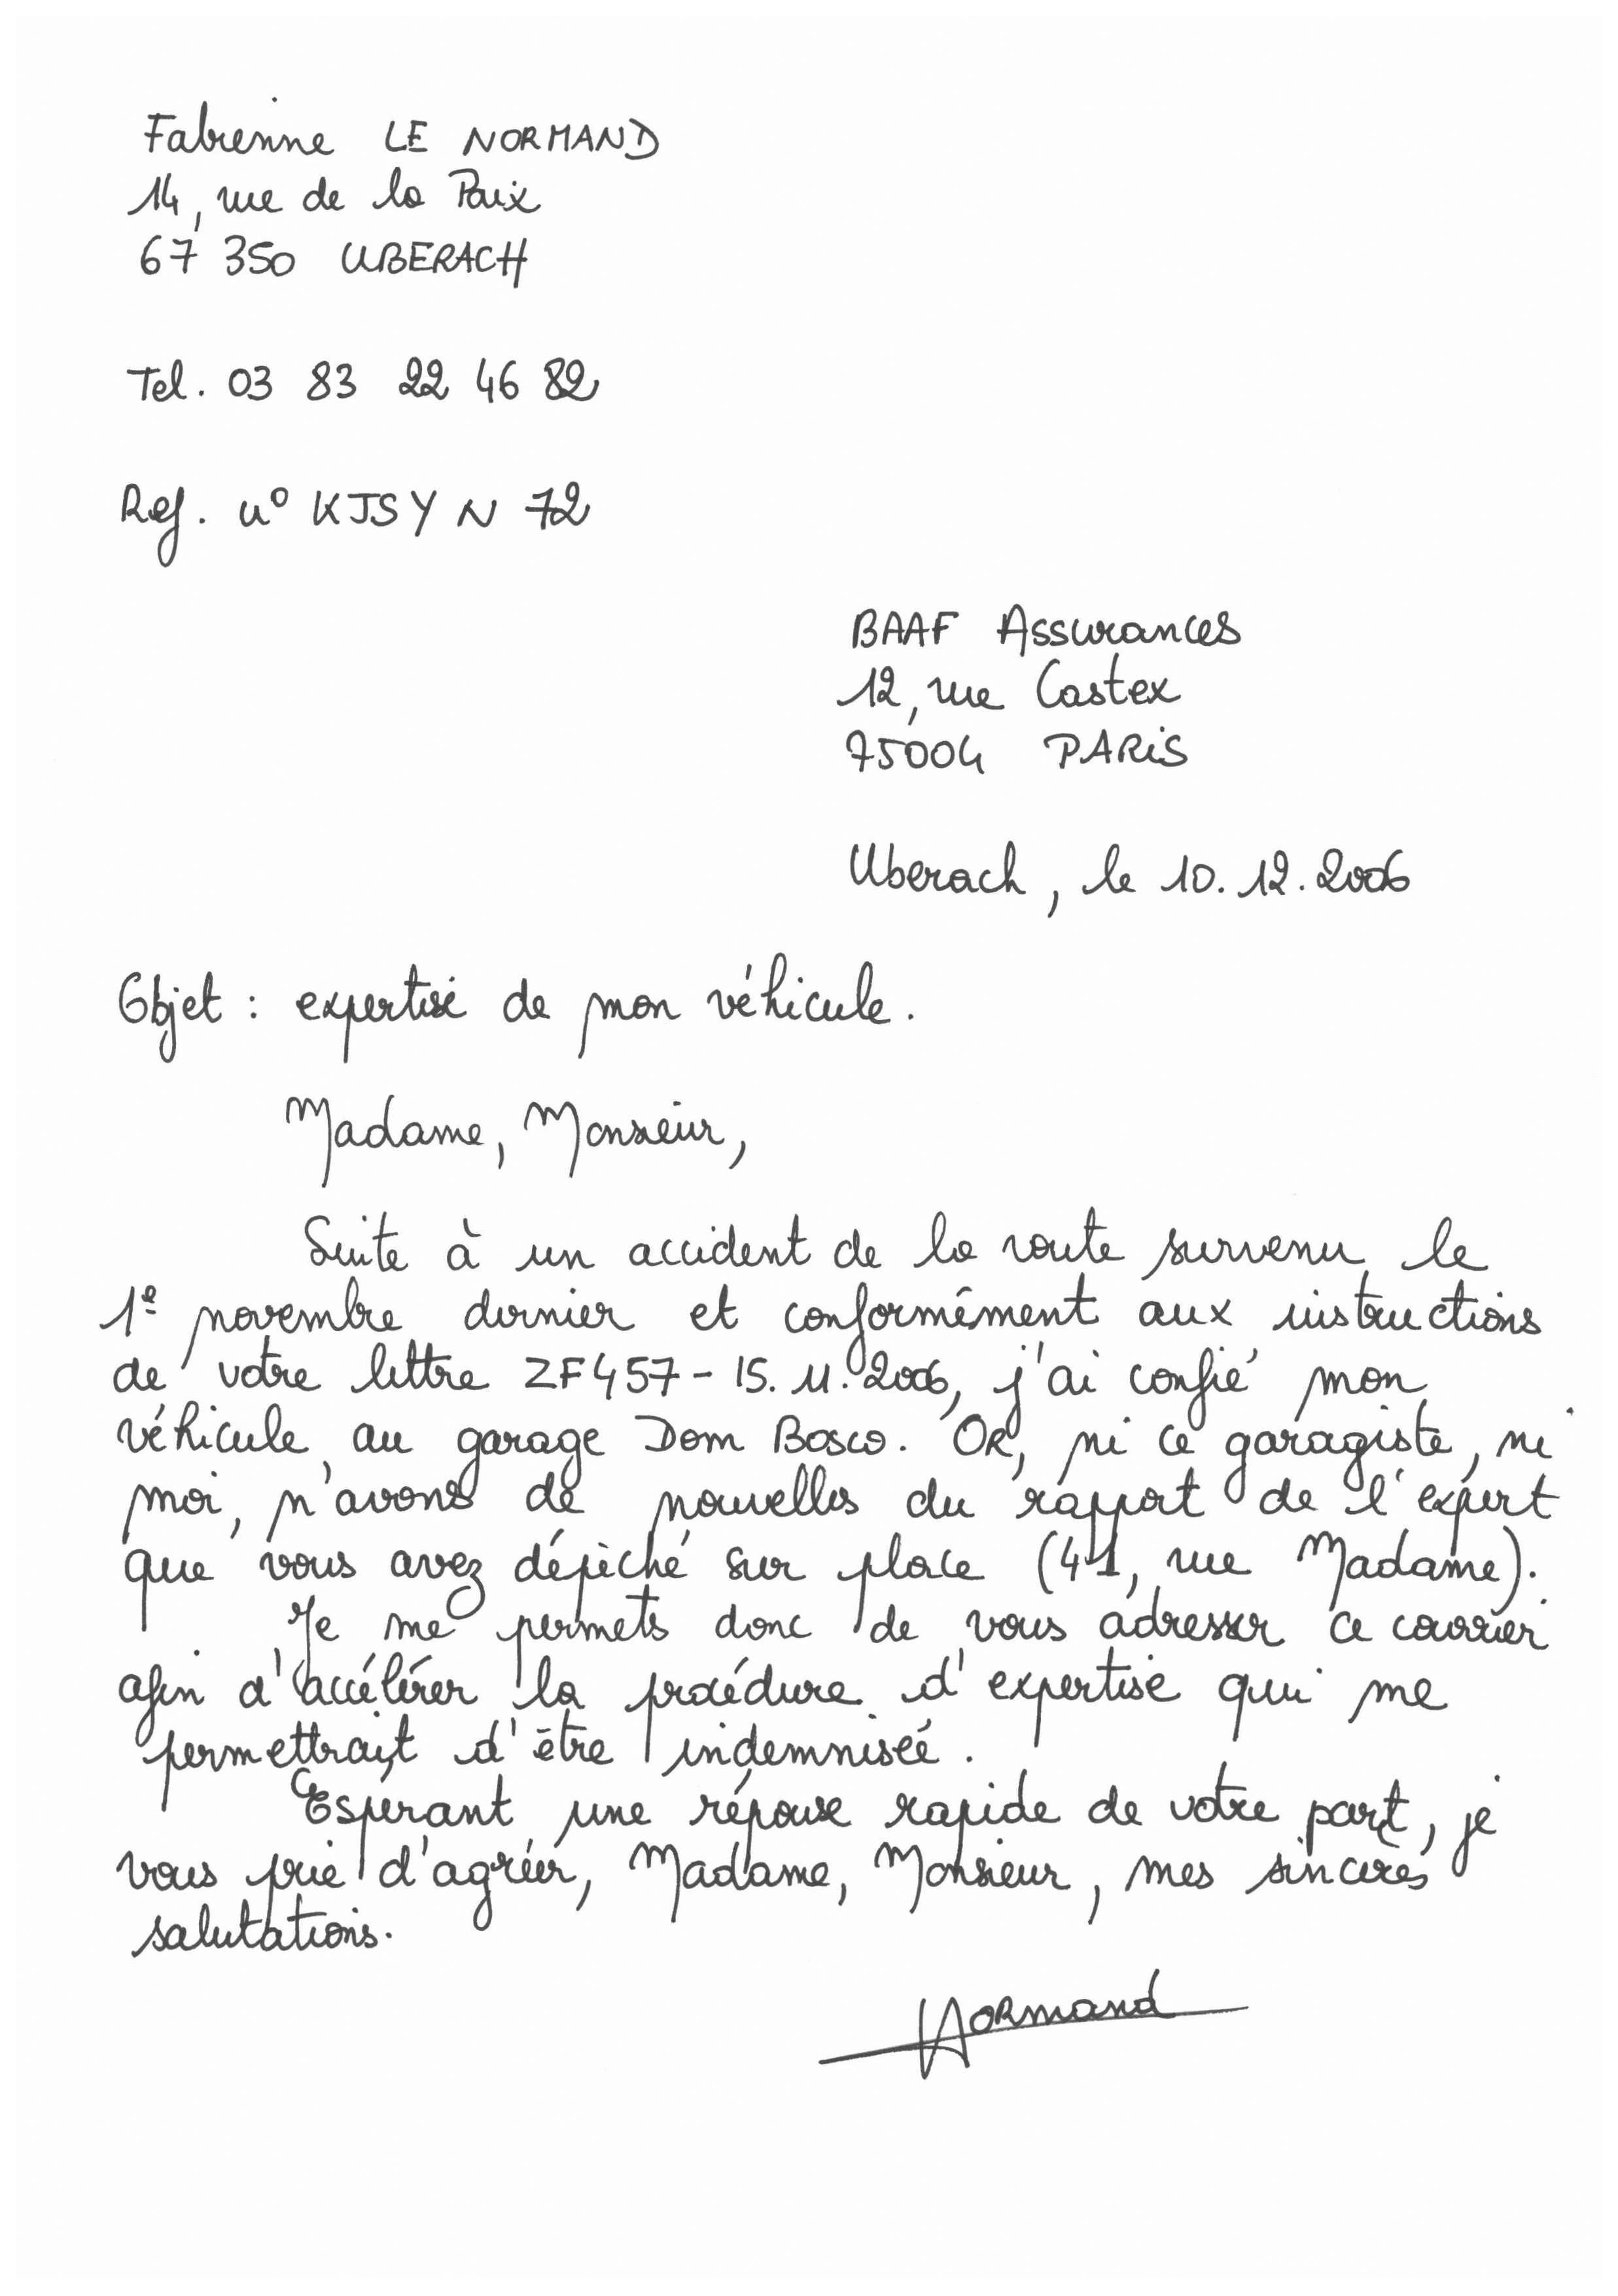 Fabienne LE NORMAND
14, rue de la Paix
67 350 UBERACH
Tel. 03 83 22 46 82
Ref. n° KJSYN 72
BAAF Assurances
12, rue Castex
75004 PARIS
Uberach, le 10.12.2006
Objet : expertise de mon véhicule.
Madame, Monsieur,
Suite à un accident de la route survenu le
1e novembre dernier et conformément aux instructions
de votre lettre ZF457-15.11.2006, j'ai confié mon
véhicule au garage Dom Bosco. Or, ni ce garagiste, ni
moi, n'avons de nouvelles du rapport de l'expert
que vous avez dépêché sur place (41, rue Madame).
Je me permets donc de vous adresser ce courrier
afin d'accélérer la procédure d'expertise qui me
permettrait d'être indemnisée.
Espérant une réponse rapide de votre part, je
vous prie d'agréer, Madame, Monsieur, mes sincères
salutations.
Normand